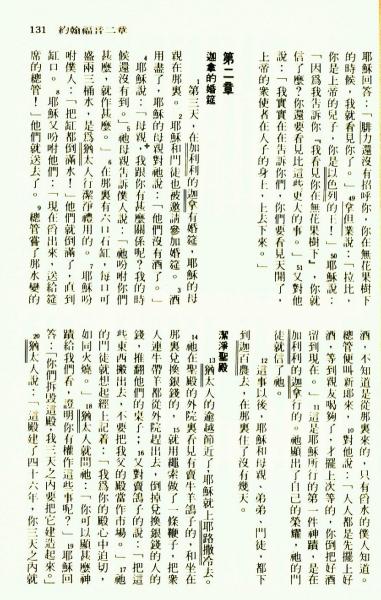 131 約翰福音二章
耶穌回答:「腓力還沒有招呼你,你在無花果樹下
的時候,我就看見你了。」49拿但業說:「拉比,
你是上帝的兒子,你是以色列的王!」50耶穌說:
「因為我告訴你『我看見你在無花果樹下』,你就
信了麼?你還要看見比這些更大的事。」51又對他
說:「我實實在在告訴你們,你們要看見天開了,
上帝的眾使者在人子的身上,上去下來。」
第二章
迦拿的婚筵
1第三天,在加利利的迦拿有婚筵,耶穌的母
親在那裏。2耶穌和門徒也被邀請參加婚筵。3酒
用盡了,耶穌的母親對祂說:「他們沒有酒了。」
4耶穌說:「母親,我跟你有甚麼關係呢?我的時
候還沒有到。」5祂母親告訴僕人說:「祂吩咐你們
甚麼,就作甚麼。」6在那裏有六口石缸,每口可
盛兩三桶水,是為猶太人行潔淨禮用的。7耶穌吩
咐僕人:「把缸都倒滿水!」他們就倒滿了,直到
缸口。8耶穌又吩咐他們:「現在舀出來,送給筵
席的總管!」他們就送去了。9總管嘗了那水變的
酒,不知道是從那裏來的,只有舀水的僕人知道。
總管便叫新郎來,10對他說:「人人都是先擺上好
酒,等到親友喝夠了,才擺上次等的,你倒把好酒
留到現在。」11這是耶穌所行的第一件神蹟,是在
加利利的迦拿行的。祂顯出了自己的榮耀,祂的門
徒就信了祂。
12這事以後,耶穌和母親、弟弟、門徒,都下
到迦百農去,在那裏住了沒有幾天。
潔淨聖殿
13猶太人的逾越節近了,耶穌就上耶路撒冷去。
14祂在聖殿的外院裏看見有賣牛羊鴿子的,和坐在
那裏兌換銀錢的,15就用繩索做了一條鞭子,把眾
人連牛帶羊都從外院趕出去,倒掉兌換銀錢的人的
錢,推翻他們的桌子;16又對賣鴿子的說:「把這
些東西搬出去,不要把我父的殿當作市場。」17祂
的門徒就想起經上記着:「我為你的殿心中迫切,
如同火燒。」18猶太人就問祂:「你可以顯甚麼神
蹟給我們看,證明你有權作這些事呢?」19耶穌回
答:「你們拆毀這殿,我三天之內要把它建造起來。」
20猶太人說:「這殿建了四十六年,你三天之內就